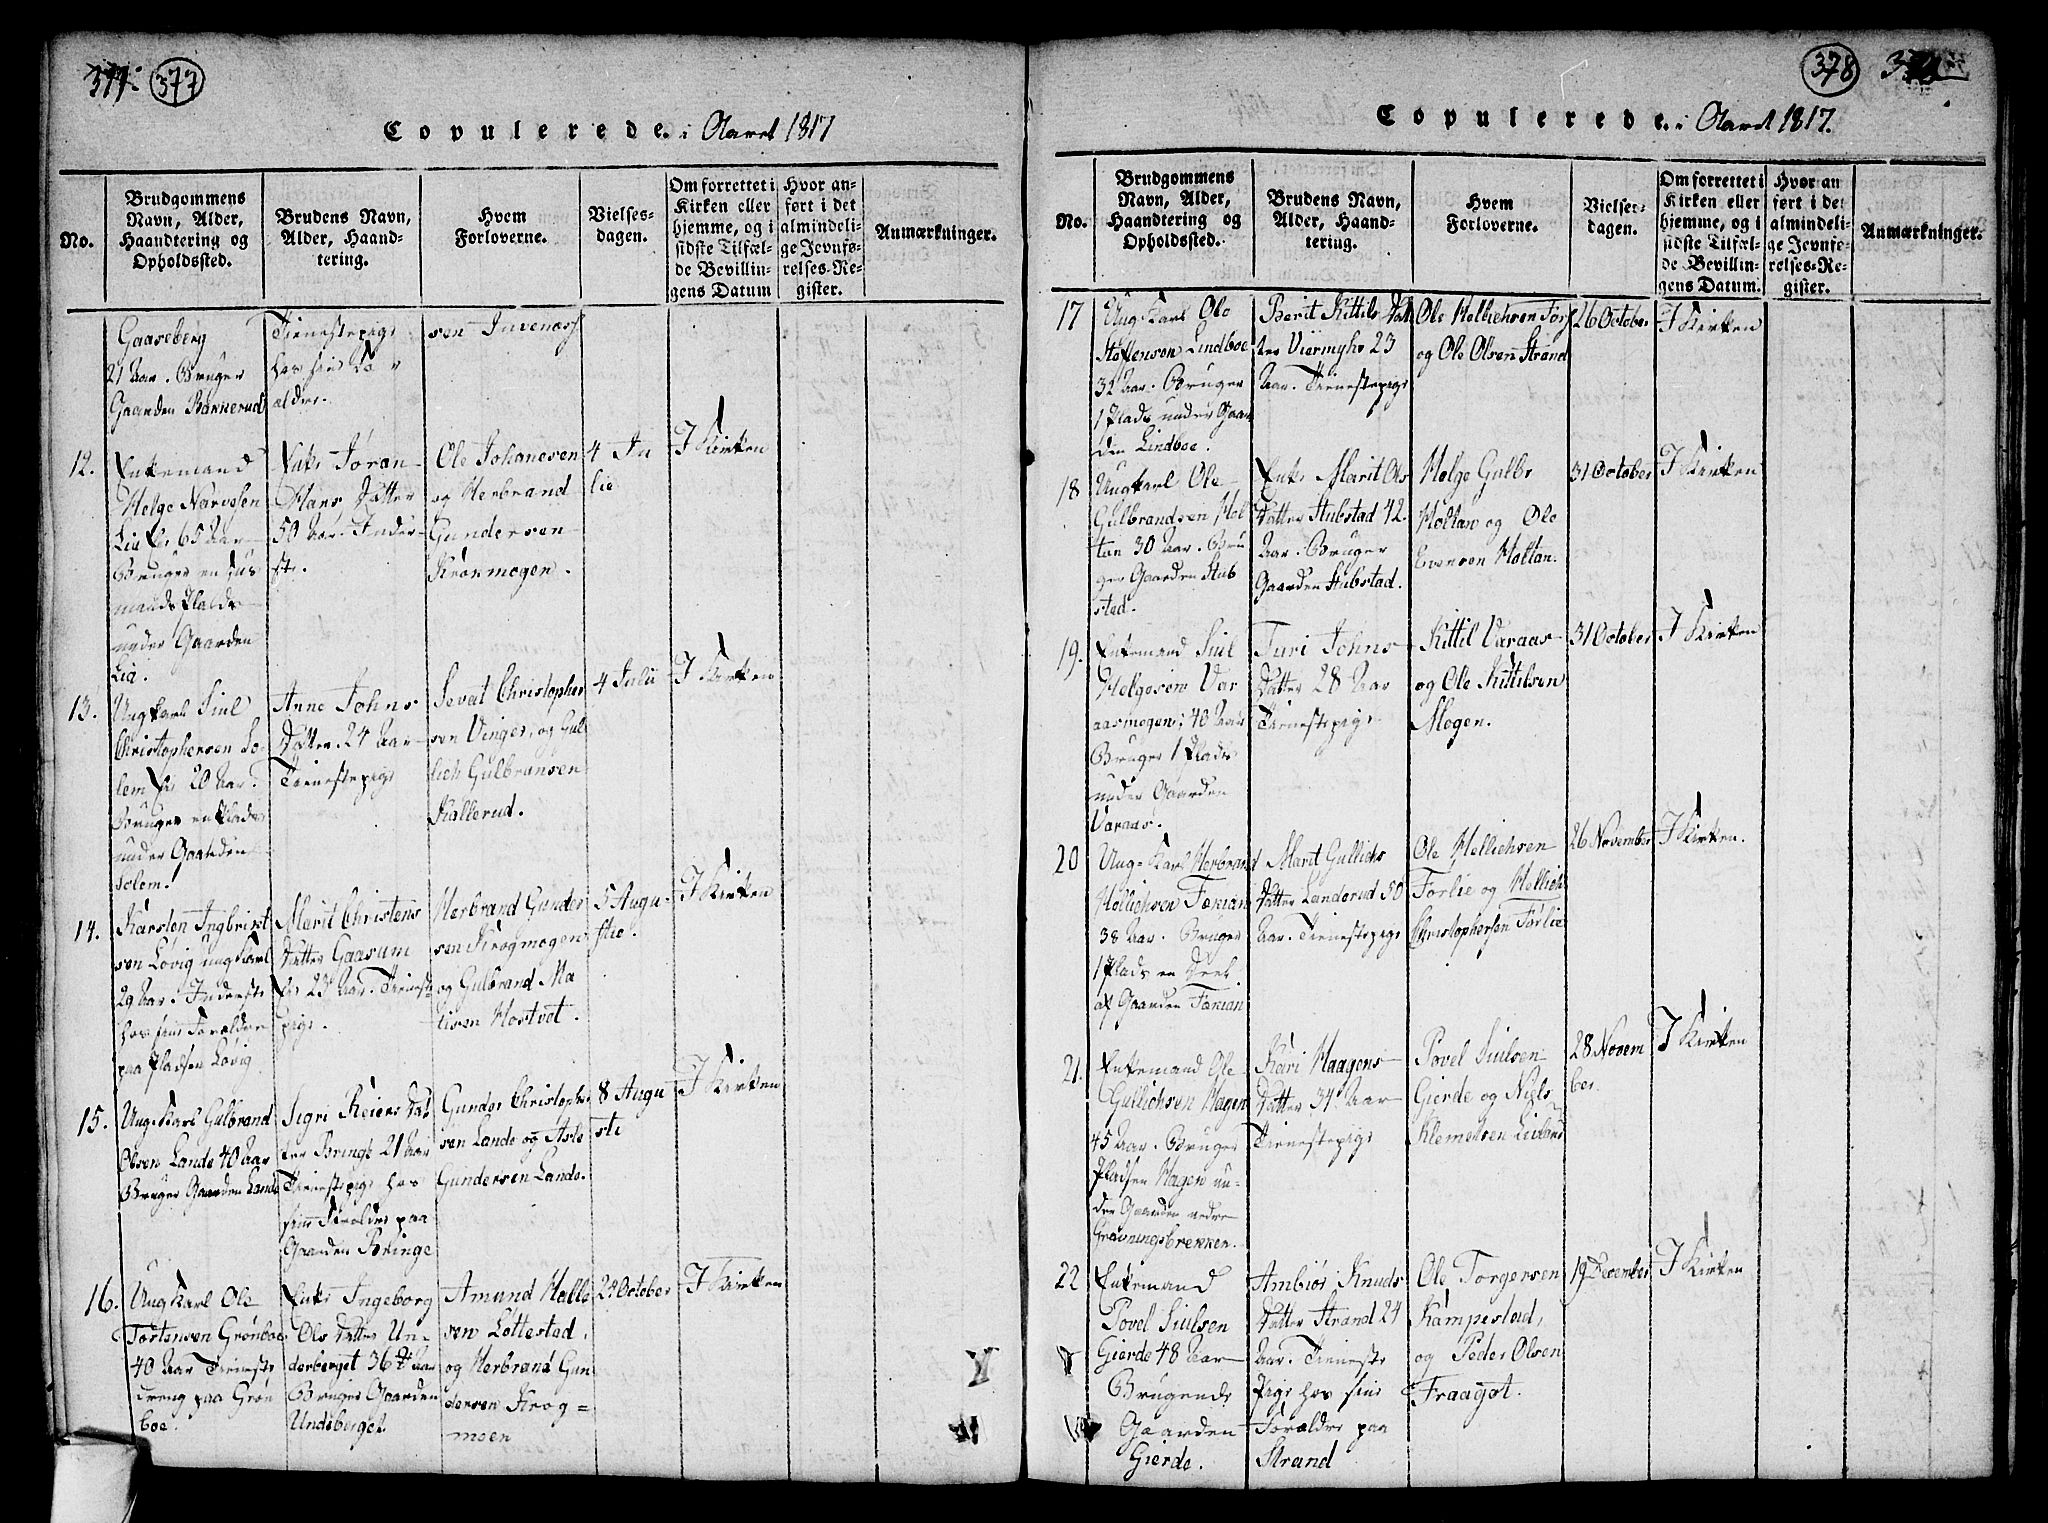 377
Copulerede. i Aaret 1817
No.
Brudgommens
Navn, Alder,
Haandtering og
Opholdssted.
Brudens Navn,
Alder, Haand-
tering.
Hvem
Forloverne.
Vielses-
dagen.
Om forrettet i
Kirken eller
hjemme, og i
sidste Tilfæl-
de Bevillin-
gens Datum
Hvor an-
ført i det
almindeli-
ge Jevnfø-
relses-Re-
gister.
Anmærkninger.
Gaaseberg
21 Aar. Bruger
Gaarden Bakkerud
Tienestepige
hos sine
ældre.
sen Juvenæss
12.
Enkemand
Helge Narvesen
Lia 65 Aar
Bruger en Hus
mands Plads
under Gaarden
Lia.
Enke Jøran
Hans Datter
50 Aar. Inder-
ste.
Ole Johanesen
og Herbrand
Gundersen
Krokmogen.
4 Ju
lie
I Kirken
13.
Ungkarl Siul
Christophersen So-
lem 20 Aar.
Bruger en Plads
under Gaarden
Solem.
Anne Johns
Datter. 24 Aar
Tienestepige
Sevat Christopher
sen Vinger, og Gul
lich Gulbransen
Kallerud.
4 Julii
I Kirken
14.
Karsten Ingbrikt
sen Løvig ungkarl
29 Aar. Inderste
hos sine Forældre
paa Pladsen Løvig
Marit Christens
Datter Gaasum
23 Aar. Tieneste
pige.
Herbrand Gunder
sen Krogmogen
og Gulbrand Ma
tisen Hostvet.
5 Augu-
stie.
I Kirken
15.
Ung Karl Gulbrand
Olsen Lande 40 Aar
Bruger Gaarden Lande
Sigri Reiers Dat
ter Bringe 21 Aar
Tienestepige hos
sine Foreldre paa
Gaarden Bringe
Gunder Christopher
sen Lande og Asle
Gundersen Lande.
8 Augu
sti
I Kirken
16.
Ung Karl Ole
Torstensen Grønboe
40 Aar Tieneste
Dreng paa Grøn
boe.
Enke Ingeborg
Ols Datter Un-
derberget 36 Aar
Bruger Gaarden
Underberget
Amund Halle
sen Lottestad,
og Herbrand Gun
dersen Krog-
moen
24 October
I Kirken
378
Copulerede. i Aaret 1817.
No.
Brudgommens
Navn, Alder,
Haandtering og
Opholdssted.
Brudens Navn,
Alder, Haand-
tering.
Hvem
Forloverne.
Vielses-
dagen.
Om forrettet i
Kirken eller
hjemme, og i
sidste Tilfæl-
de Bevillin-
gens Datum.
Hvor an
ført i det
almindeli-
ge Jevnfø-
relses-Re-
gister.
Anmærkninger.
17
Ung Karl Ole
Steffensen Lindboe
32 Aar. Bruger
1 Plads under Gaar
den Lindboe.
Berit Kittils Dat
ter Viermyhr 23
Aar. Tienestepige
Ole Hellichsen
og Ole Olsen Strand
26 October
I Kirken
18
Ungkarl Ole
Gulbrandsen Hol
tan 30 Aar. Bru
ger Gaarden Stub
sted.
Enke Marit Ols
Datter Stubstad 42.
Aar. Bruger
Gaarden Stubstad.
Helge Gulbr
Holtan og Ole
Evensen Holtan.
31 October
I Kirken
19.
Enkemand Siul
Helgesen Var
aasmogen: 40 Aar
Bruger 1 Plads
under Gaarden
Varaas.
Turi Johns
Datter 28 Aar
Tienestepige
Kittil Varaas
og Ole Kittilsen
Mogen.
31 October
I Kirken
20
Ung-Karl Herbrand
Hellichsen Tøkian
38 Aar. Bruger
1 Plads en Deel
af Gaarden Tøkian
Marit Gullichs
Datter Landerud 50
Aar. Tienestepige
Ole Hellichsen
Førlie og Hellich
Christophersen Førlie
26 November
I Kirken.
21.
Enkemand Ole
Gullichsen Hagen
45 Aar. Bruger
Pladsen Hagen un-
der Gaarden nedre
Grøvningsbrekken.
Kari Haagens
Datter 34 Aar
Tienestepige
Povel Siulsen
Gierde og Niels
Klemetsen
28 Novem
ber.
I Kirken
22
Enkemand
Povel Siulsen
Gierde 48 Aar
Brugende
Gaarden
Gierde.
Ambiør Knuds
Datter Strand 24
Aar. Tieneste
Pige hos sine
Forældre paa
Strand
Ole Torgersen
Kampestad,
og Peder Olsen
Fraagot.
19 December
I Kirken